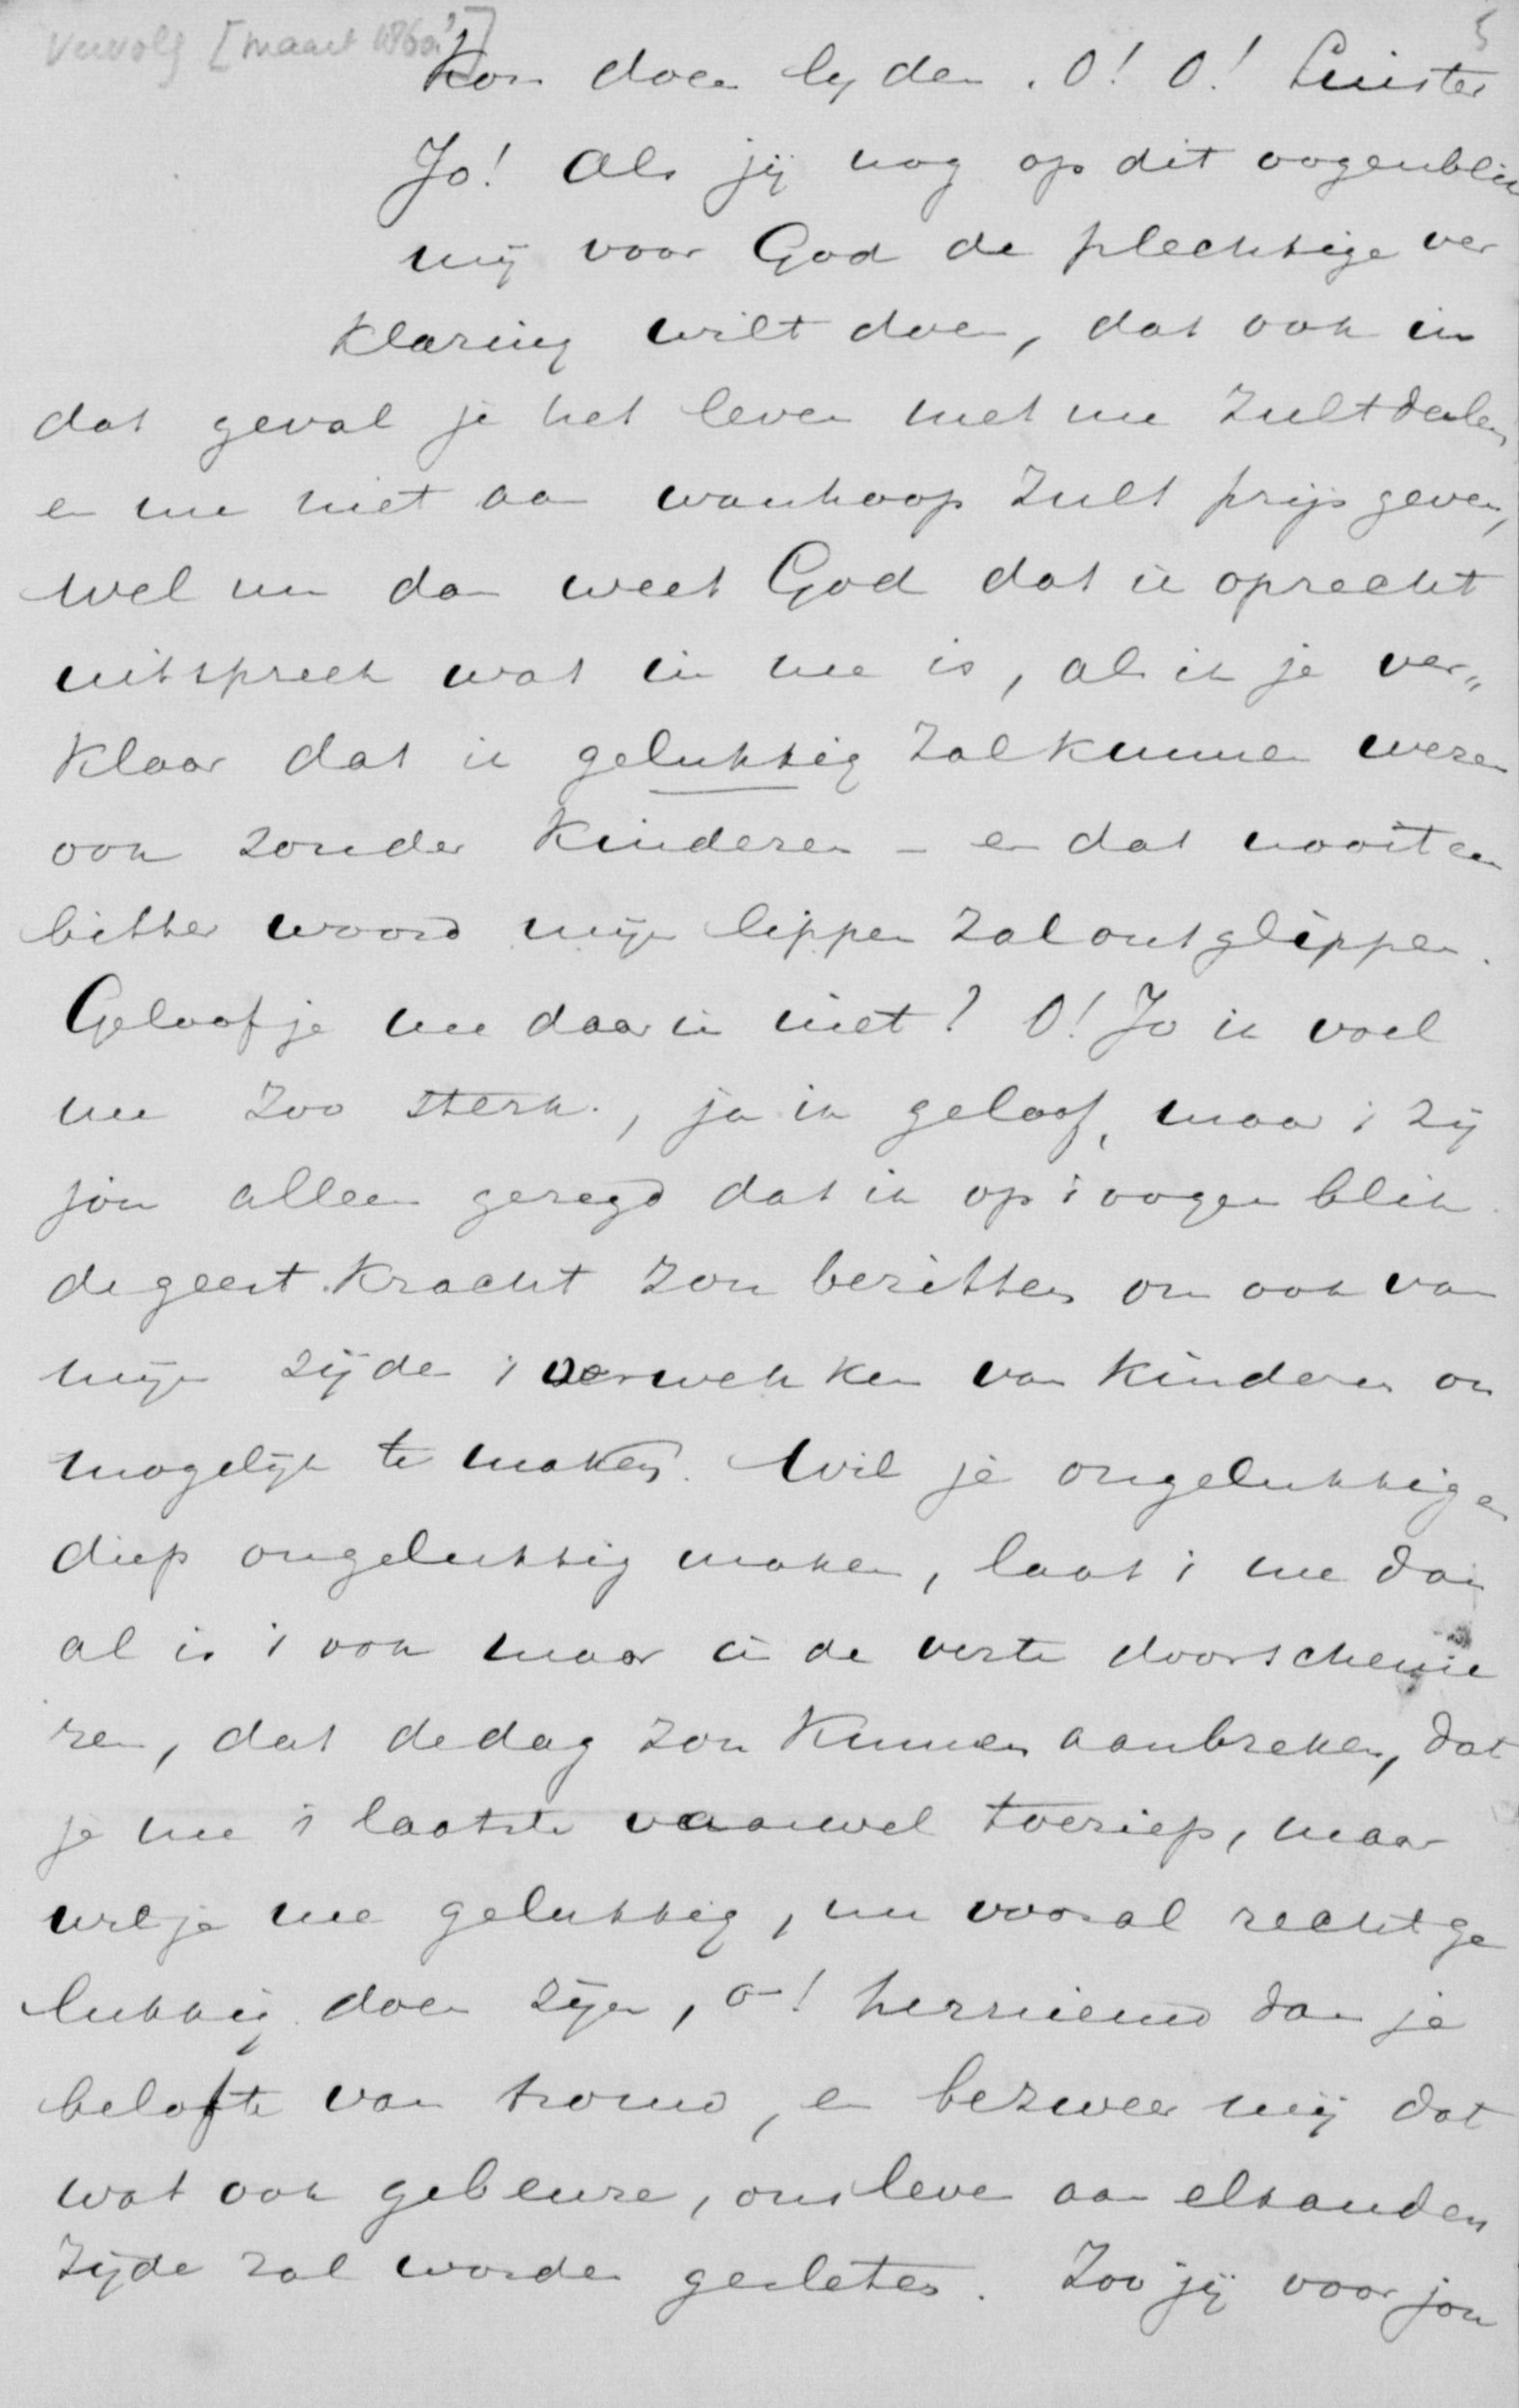 Vervolg [maart 1860?] 5
kon doen lyden. O! O! Luister
Jo! Als jij nog op dit oogenblik
mij voor God de plechtige ver
klaring wilt doen, dat ook in
dat geval je het leven met me zult deelen
en me niet aan wanhoop zult prijs geven,
wel nu dan weet God dat ik oprecht
uitspreek wat in me is, als ik je ver„
klaar dat ik gelukkig zal kunnen wezen
ook zonder kinderen – en dat nooit een
bitter woord mijn lippen zal ontglippen.
Geloof je me daarin niet? O! Jo ik voel
me zoo sterk, ja ik geloof, maar 't zij
jou alleen gezegd dat ik op 't oogenblik
de geestkracht zou bezitten om ook van
mijn zijde 't verwekken van kinderen on
mogelijk te maken. Wil je ongelukkig en
diep ongelukkig maken, laat 't me dan
al is 't ook maar in de verte doorscheme
ren, dat de dag zou kunnen aanbreken, dat
je me 't laatste vaarwel toeriep, maar
wil je me gelukkig, nu vooral recht ge
lukkig doen zijn, o! hernieuw dan je
belofte van trouw, en bezweer mij dat
wat ook gebeure, ons leven aan elkanders
zijde zal worden gesleten. Zoo jij voor jou